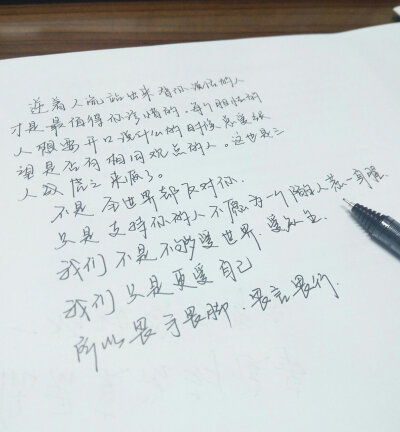 逆着人流站出来替你说话的人
才是最值得你珍惜的.每个胆怯的
人想要开口说什么的时候总要张
望是否有相同观点的人。这也是三
人成虎之来底了。
不是全世界都反对你.
只是支持你的人不愿为一个陌生人惹一身骚
我们不是不够爱世界.爱众生
我们只是更爱自己
所以畏手畏脚.畏言畏行.